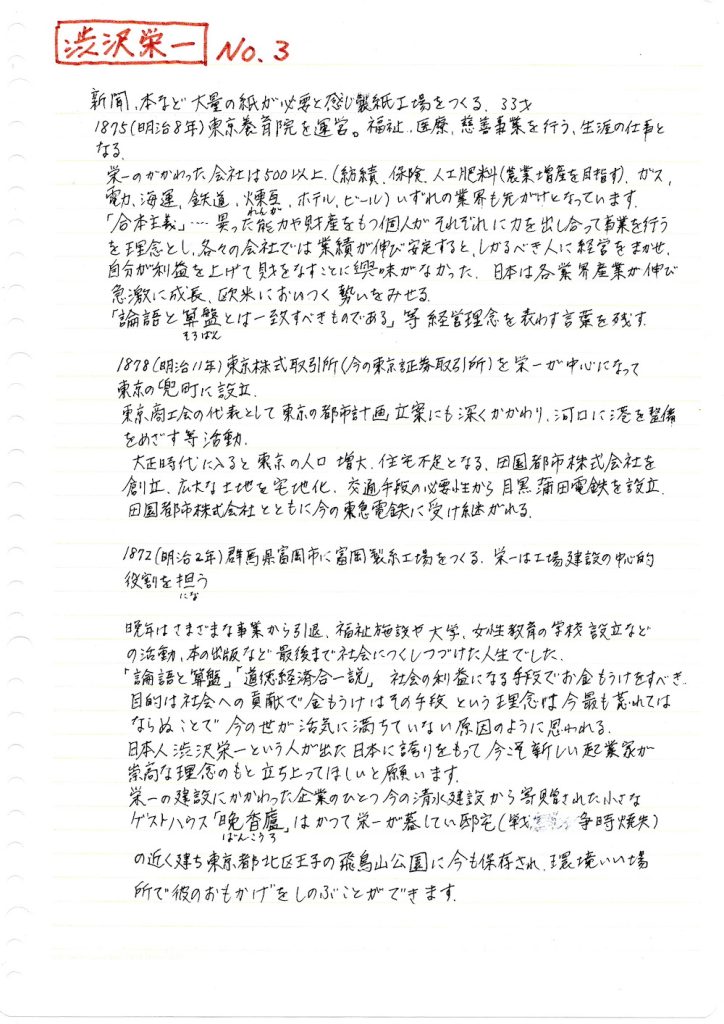 渋沢栄一 No.3
新聞、本など大量の紙が必要と感じ製紙工場をつくる、33才
1875(明治8年)東京養育院を運営。福祉、医療、慈善事業を行う、生涯の仕事と
なる.
栄一のかかわった会社は500以上、(紡績、保険、人工肥料(農業増産を目指す)、ガス、
電力、海運、鉄道、煉瓦、ホテル、ビール)いずれの業界も先がけとなっています.
れんが
「合本主義」‥‥異った能力や財産をもつ個人がそれぞれに力を出し合って事業を行う
を理念とし、各々の会社では業績が伸び安定すると、しかるべき人に経営をまかせ、
自分が利益を上げて財をなすことに興味がなかった、日本は各業界産業が伸び
急激に成長、欧米においつく勢いをみせる.
「論語と算盤とは一致すべきものである」等経営理念を表わす言葉を残す.
そろばん
1878(明治11年)東京株式取引所(今の東京証券取引所)を栄一が中心になって
東京の兜町に設立.
東京商工会の代表として東京の都市計画立案にも深くかかわり、河口に港を整備
をめざす等活動.
大正時代に入ると東京の人口増大、住宅不足となる、田園都市株式会社を
創立、広大な土地を宅地化、交通手段の必要性から目黒蒲田電鉄を設立.
田園都市株式会社とともに今の東急電鉄に受け継がれる.
1872(明治2年)群馬県富岡市に富岡製糸工場をつくる、栄一は工場建設の中心的
役割を担う
にな
晩年はさまざまな事業から引退、福祉施設や大学、女性教育の学校設立など
の活動、本の出版など最後まで社会につくしつづけた人生でした.
「論語と算盤」「道徳経済合一説」 社会の利益になる手段でお金もうけをすべき.
目的は社会への貢献で金もうけはその手段という理念は今最も忘れては
ならぬことで今の世が活気に満ちていない原因のように思われる.
日本人渋沢栄一という人が出た日本に誇りをもって今こそ新しい起業家が
崇高な理念のもと立ち上ってほしいと願います.
栄一の建設にかかわった企業のひとつ今の清水建設から寄贈された小さな
ゲストハウス「晩香廬」はかつて栄一が暮してい邸宅(戦争時焼失)
ばんこうろ
の近く建ち東京都北区王子の飛鳥山公園に今も保存され、環境いい場
所で彼のおもかげをしのぶことができます.